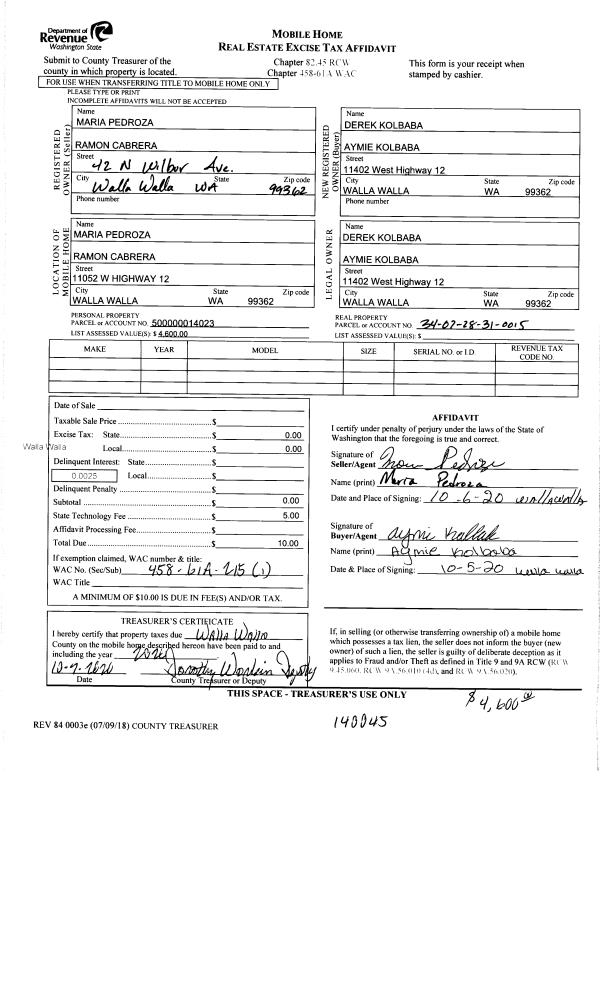 Department of
Revenue
Washington State
MOBILE HOME
REAL ESTATE EXCISE TAX AFFIDAVIT
Submit to County Treasurer of the
county in which property is located.
Chapter 82.45 RCW
Chapter 458-61A WAC
This form is your receipt when
stamped by cashier.
FOR USE WHEN TRANSFERRING TITLE TO MOBILE HOME ONLY
PLEASE TYPE OR PRINT
INCOMPLETE AFFIDAVITS WILL NOT BE ACCEPTED
REGISTERED
OWNER (Seller)
Name
MARIA PEDROZA
RAMON CABRERA
Street
42 N Wilbur Ave.
City State Zip code
Walla Walla WA 99362
Phone number
NEW REGISTERED
OWNER (Buyer)
Name
DEREK KOLBABA
AYMIE KOLBABA
Street
11402 West Highway 12
City State Zip code
WALLA WALLA WA 99362
Phone number
LOCATION OF
MOBILE HOME
Name
MARIA PEDROZA
RAMON CABRERA
Street
11052 W HIGHWAY 12
City State Zip code
WALLA WALLA WA 99362
LEGAL OWNER
Name
DEREK KOLBABA
AYMIE KOLBABA
Street
11402 West Highway 12
City State Zip code
WALLA WALLA WA 99362
PERSONAL PROPERTY
PARCEL or ACCOUNT NO. 500000014023
LIST ASSESSED VALUE(S): $ 4,600.00
REAL PROPERTY
PARCEL or ACCOUNT NO. 34-07-28-31-0015
LIST ASSESSED VALUE(S): $
MAKE YEAR MODEL SIZE SERIAL NO. or I.D. REVENUE TAX
CODE NO.
Date of Sale
Taxable Sale Price $
Excise Tax: State $ 0.00
Walla Walla Local $ 0.00
Delinquent Interest: State $
0.0025 Local $
Delinquent Penalty $
Subtotal $ 0.00
State Technology Fee $ 5.00
Affidavit Processing Fee $
Total Due $ 10.00
If exemption claimed, WAC number & title:
WAC No. (Sec/Sub) 458-61A-215 (1)
WAC Title
A MINIMUM OF $10.00 IS DUE IN FEE(S) AND/OR TAX.
AFFIDAVIT
I certify under penalty of perjury under the laws of the State of
Washington that the foregoing is true and correct.
Signature of
Seller/Agent
Name (print) Maria Pedroza
Date and Place of Signing: 10-6-20 wallawalla
Signature of
Buyer/Agent Aymie Kolbab
Name (print) Aymie Kolbaba
Date & Place of Signing: 10-5-20 walla walla
TREASURER'S CERTIFICATE
I hereby certify that property taxes due Walla Walla
County on the mobile home described hereon have been paid to and
including the year
10-9-2020
Date County Treasurer or Deputy
If, in selling (or otherwise transferring ownership of) a mobile home
which possesses a tax lien, the seller does not inform the buyer (new
owner) of such a lien, the seller is guilty of deliberate deception as it
applies to Fraud and/or Theft as defined in Title 9 and 9A RCW (RCW
9.45.060, RCW 9A.56.010 (4d), and RCW 9A.56.020).
THIS SPACE - TREASURER'S USE ONLY
$4,600.00
REV 84 0003e (07/09/18) COUNTY TREASURER
140045